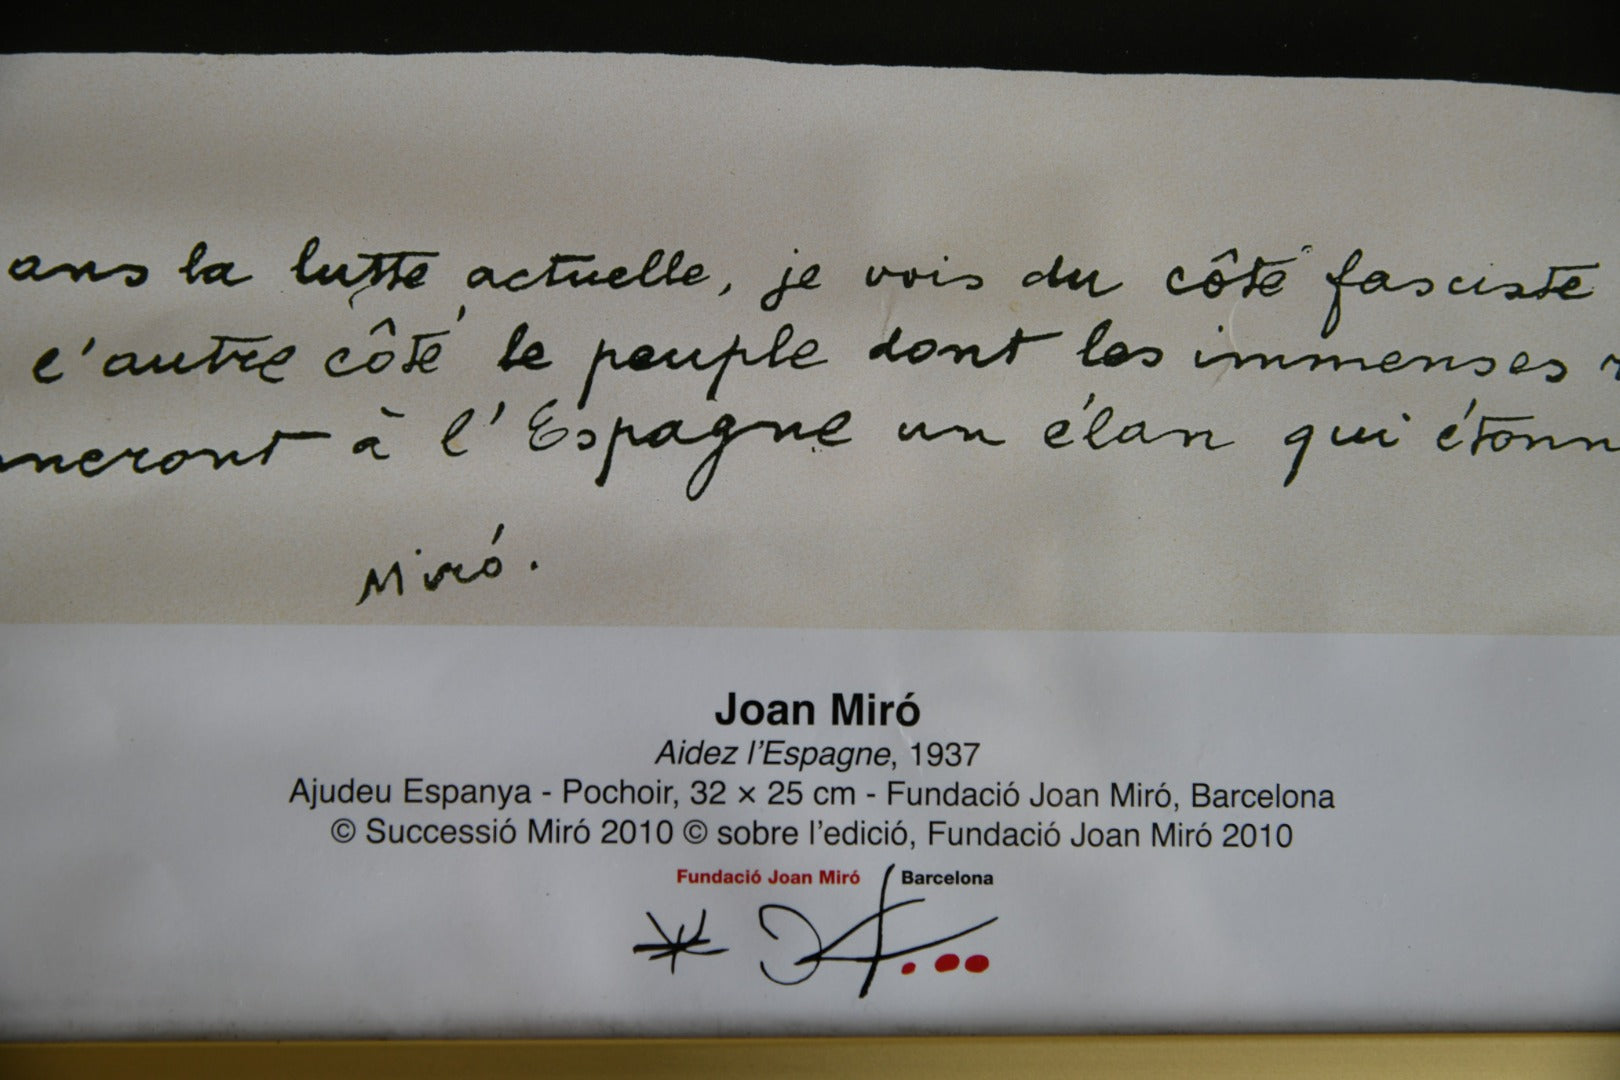 ans la lutte actuelle, je vois du côté fasciste
l'autre côté le peuple dont les immenses
nneront à l'Espagne un élan qui étonn
Miró.
Joan Miró
Aidez l'Espagne, 1937
Ajudeu Espanya - Pochoir, 32 × 25 cm - Fundació Joan Miró, Barcelona
© Successió Miró 2010 © sobre l'edició, Fundació Joan Miró 2010
Fundació Joan Miró Barcelona